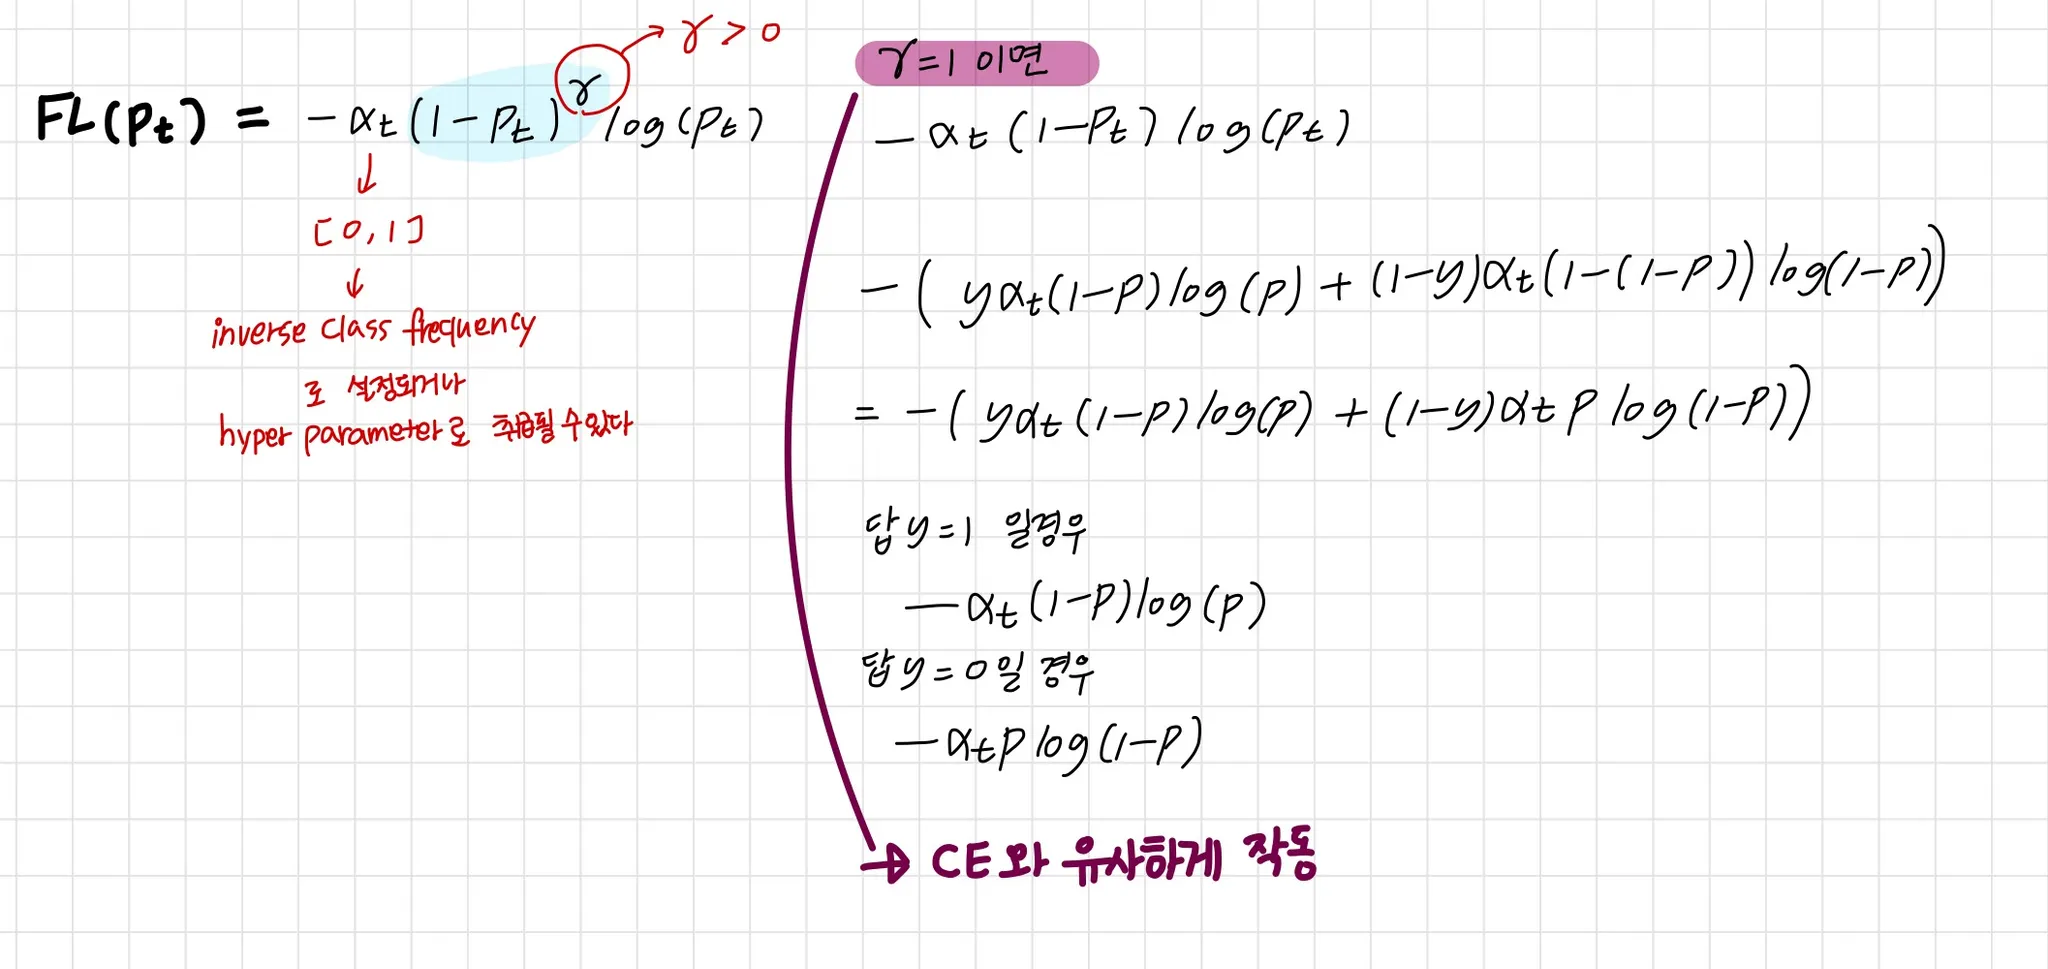 γ > 0
FL(Pt) = -αt(1-Pt)^γ log(Pt)
[0,1]
inverse class frequency
로 설정되거나
hyper parameter로 취급될 수 있다
γ=1 이면
-αt(1-Pt) log(Pt)
-( yαt(1-P)log(P) + (1-y)αt(1-(1-P)) log(1-P))
= -( yαt(1-P)log(P) + (1-y)αt P log(1-P))
답 y=1 일경우
-αt(1-P)log(P)
답 y=0일 경우
-αtP log(1-P)
→ CE와 유사하게 작동